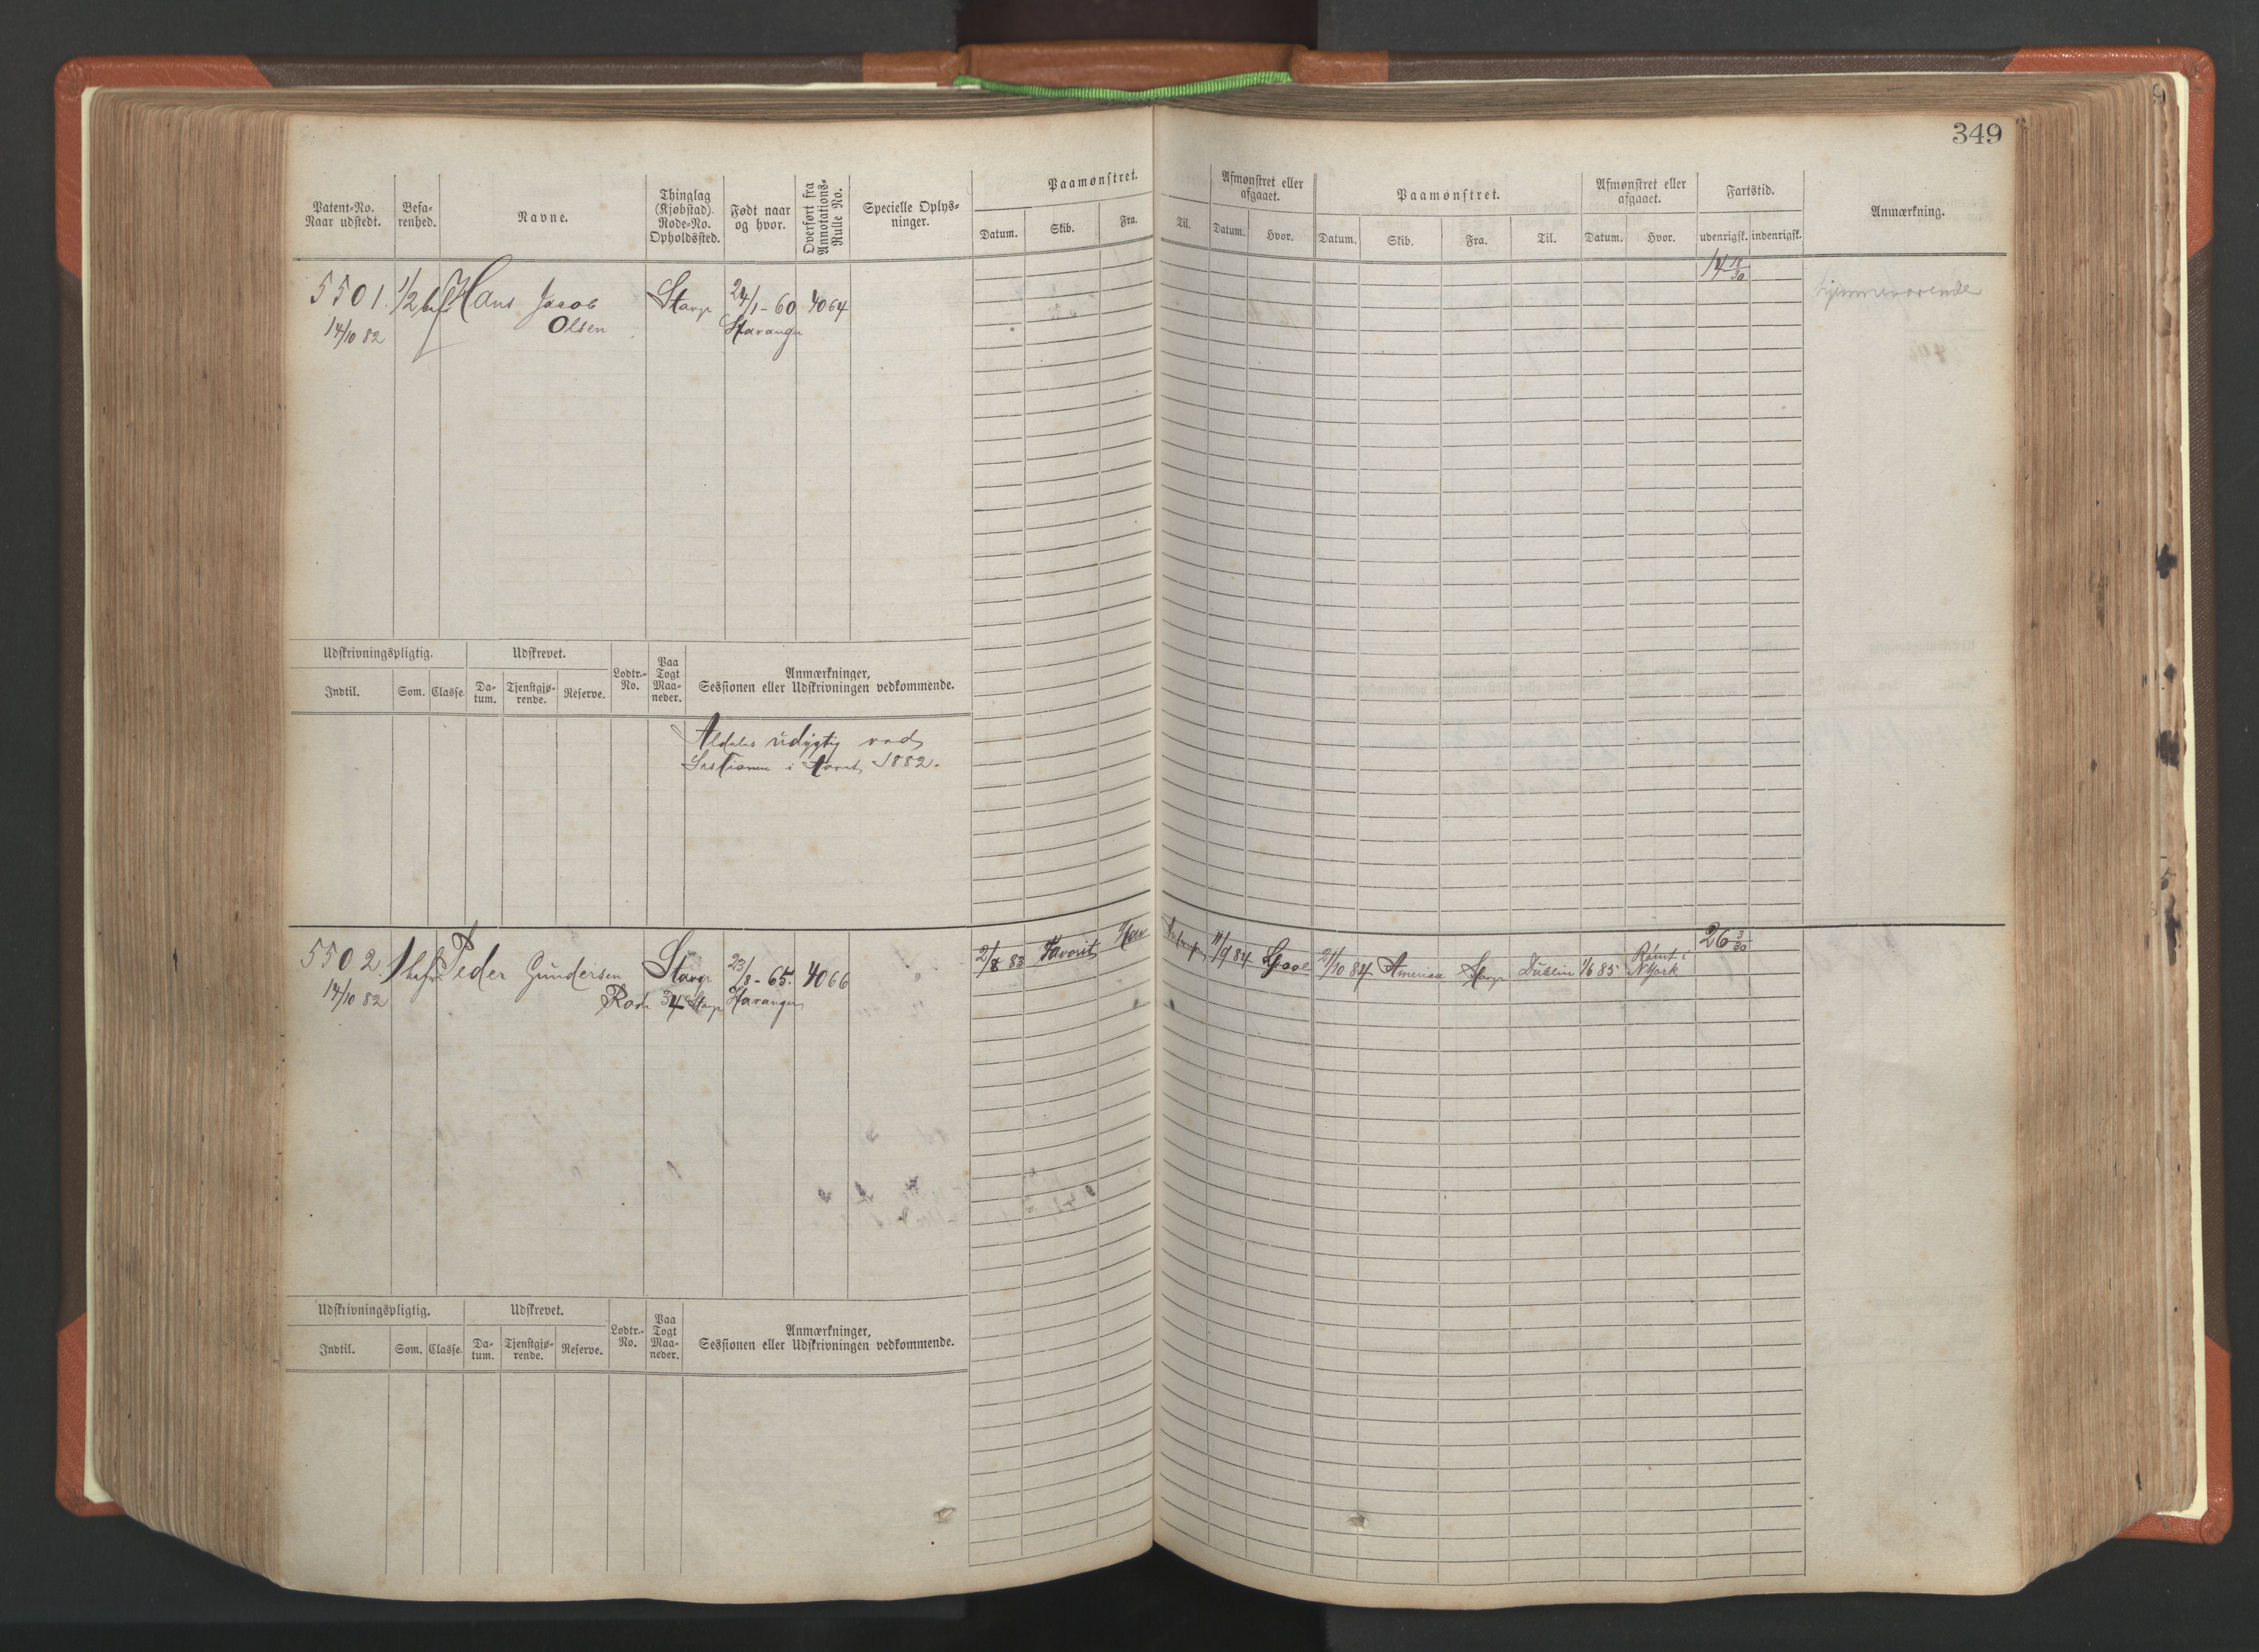 349
Patent-No. Naar udstedt.
Befa-renhed.
Navne.
Thinglag (Kjøbstad). Rode-No. Opholdssted.
Født naar og hvor.
Overført fra Annotations-Rulle No.
Specielle Oplys-ninger.
Paamønstret.
Datum. Skib. Fra. Til.
Afmønstret eller afgaaet.
Datum. Hvor.
Paamønstret.
Datum. Skib. Fra. Til.
Afmønstret eller afgaaet.
Datum. Hvor.
Fartstid.
udenrigsk. indenrigsk.
Anmærkning.
5501 1/2 bef Hans Jacob Stavgr 24/1-60 4064
14/10 82 Olsen Stavanger
hjemmeværende
Udskrivningspligtig.
Indtil. Som. Classe.
Udskrevet.
Da-tum. Tjenstgjø-rende. Reserve.
Lodtr.-No.
Paa Togt Maa-neder.
Anmærkninger,
Sessionen eller Udskrivningen vedkommende.
Aldeles udygtig ved
Sessionen i Aaret 1882.
5502 1 bef Peder Gundersen Stavgr 23/8-65. 4066 21/8 83 Favorit Hav 11/9 84 Lpool 21/10 84 America Stavgr Dublin 1/6 85 Rømt i NYork 26 3/30
14/10 82 Rode 34 Stavgr Stavanger
Udskrivningspligtig.
Indtil. Som. Classe.
Udskrevet.
Da-tum. Tjenstgjø-rende. Reserve.
Lodtr.-No.
Paa Togt Maa-neder.
Anmærkninger,
Sessionen eller Udskrivningen vedkommende.